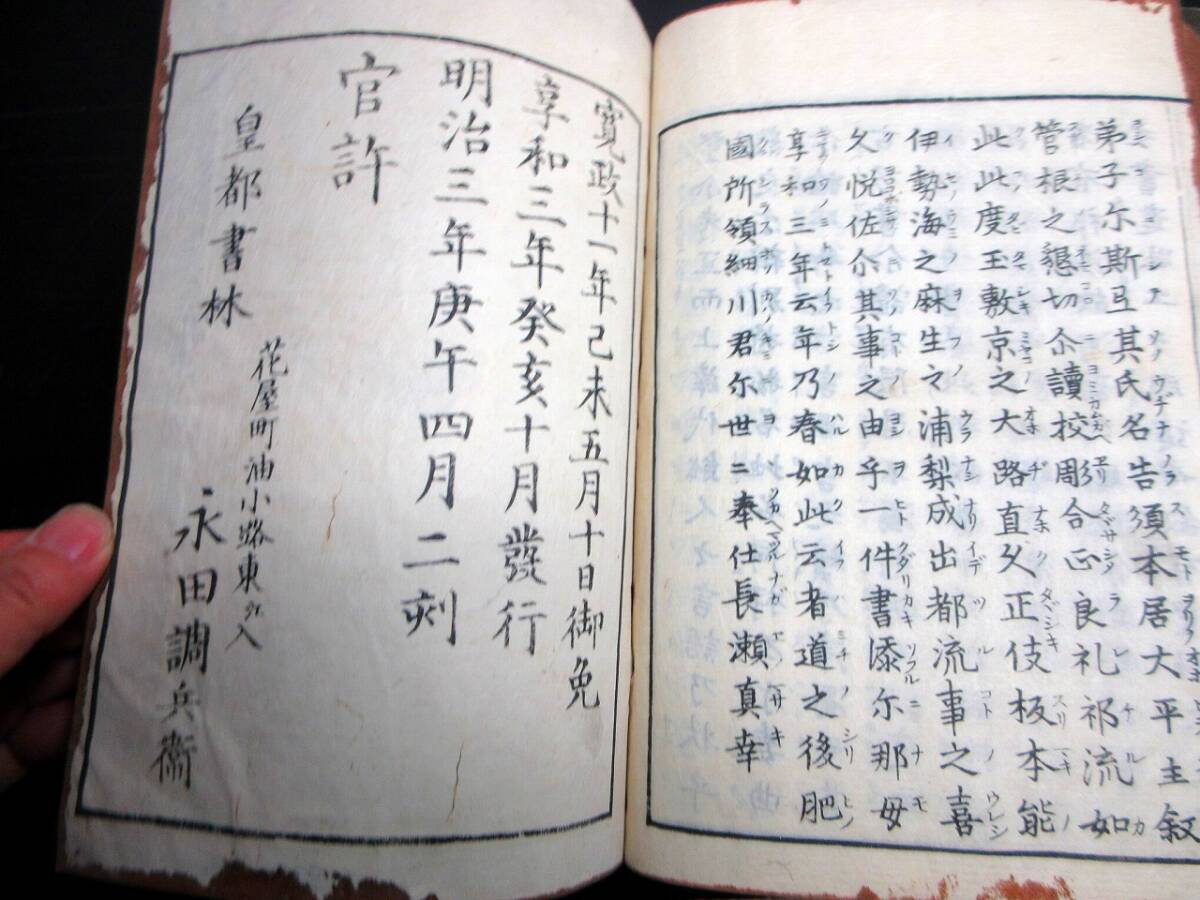 弟子尓斯弖其氏名告須本居大平主叙
菅根之懇切尒讀校彫合正良礼祁流如
此此度玉敷京之大路直久正伎板本能
伊勢海之麻生之浦梨成出都流事之喜
久悦佐尒其事之由乎一件書添尓那毋
享和三年云年乃春如此云者道之後肥
國所領細川君尓世二奉仕長瀬真幸
寛政十一年己未五月十日御免
享和三年癸亥十月發行
明治三年庚午四月二刻
官許
皇都書林
花屋町油小路東ヘ入
永田調兵衞